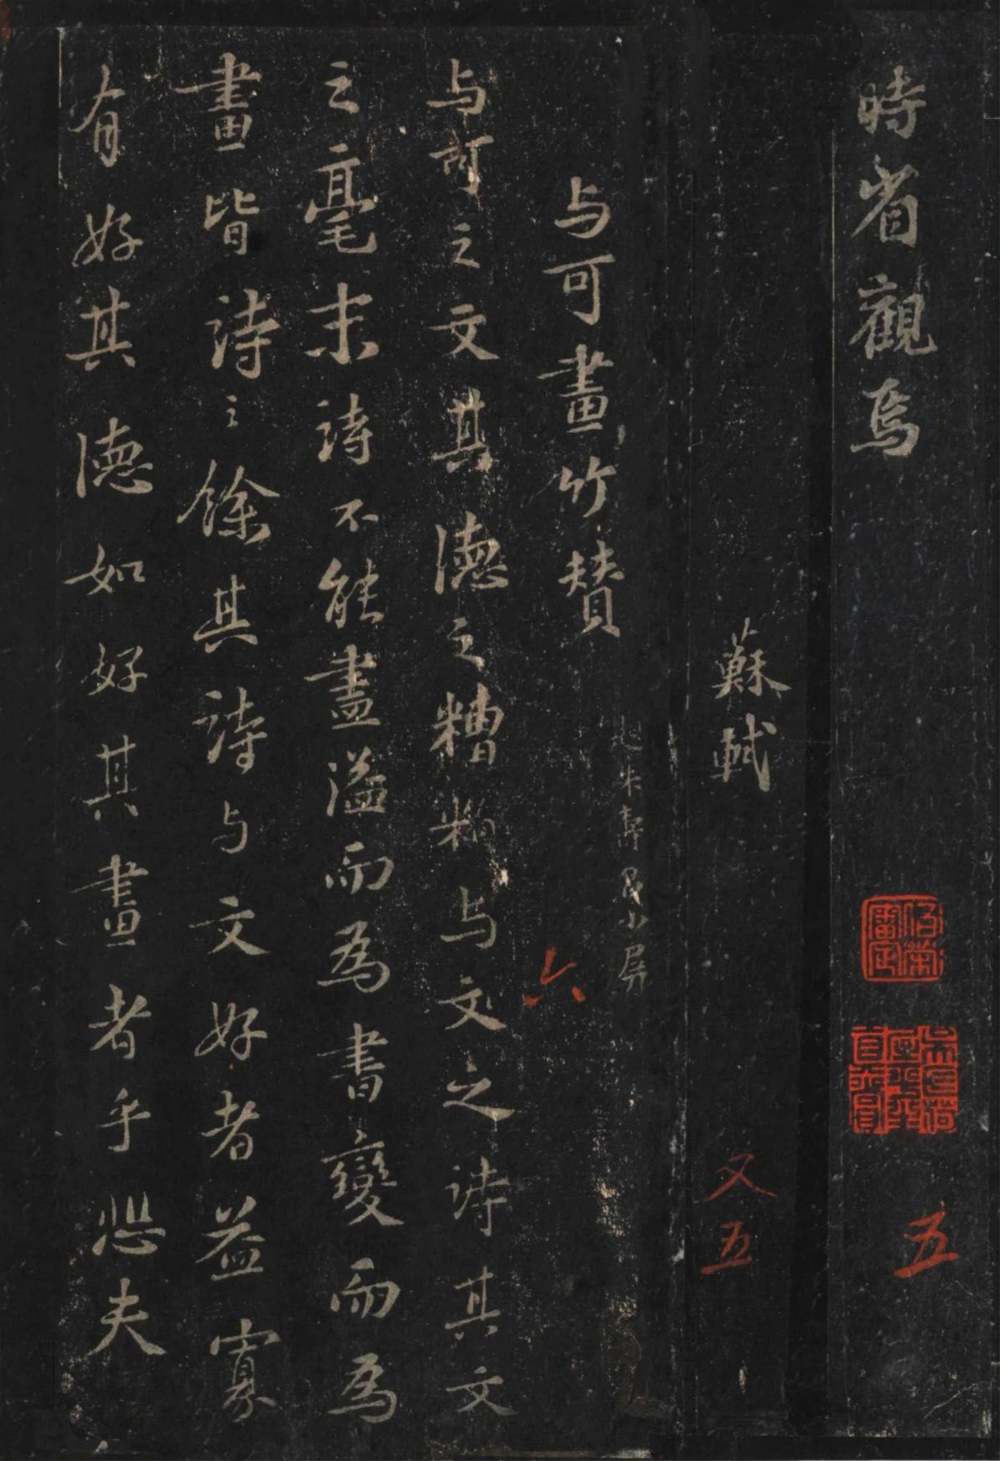 時省觀焉
五
蘇軾
又五
与可畫竹賛
六
与可之文其德之糟粕与文之詩其文
之毫末詩不能盡溢而為書變而為
畫皆詩之餘其詩与文好者益寡
有好其德如好其畫者乎悲夫